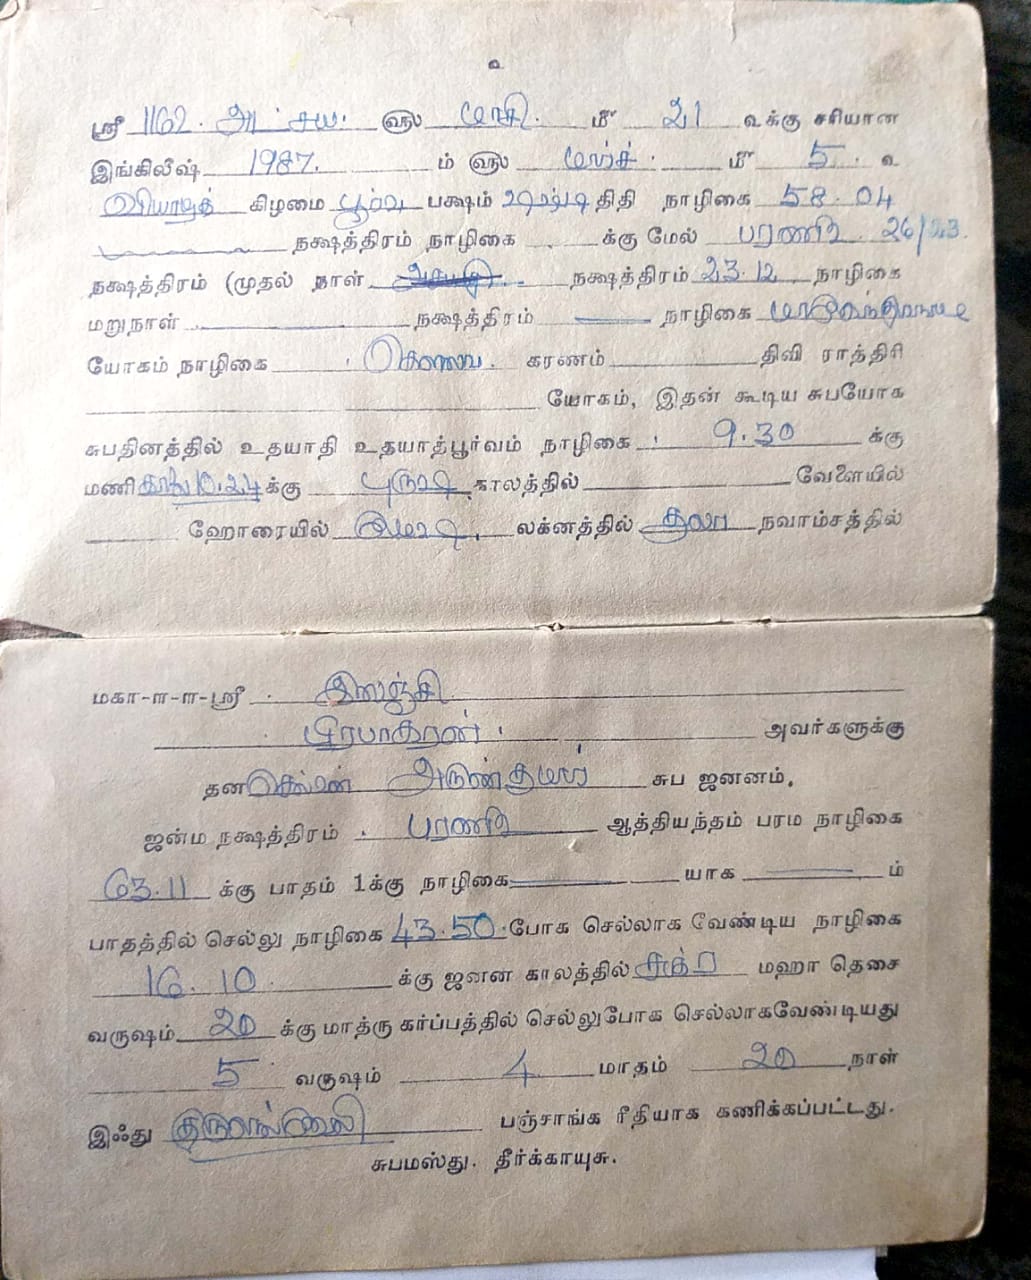 ௨
ஸ்ரீ 1162. அட்சய. ௵ மாசி. ௴ 21 ௳க்கு சரியான
இங்கிலீஷ் 1987. ம் ௵ மார்ச். ௴ 5. ௳
வியாழக் கிழமை பூர்வ பக்ஷம் ஷஷ்டி திதி நாழிகை 58.04
நக்ஷத்திரம் நாழிகை க்கு மேல் பரணி 26/23.
நக்ஷத்திரம் (முதல் நாள் நக்ஷத்திரம் 23.12 நாழிகை
மறுநாள் நக்ஷத்திரம் நாழிகை
யோகம் நாழிகை கரணம் திவி ராத்திரி
யோகம், இதன் கூடிய சுபயோக
சுபதினத்தில் உதயாதி உதயாத்பூர்வம் நாழிகை 9.30 க்கு
மணி 10.24க்கு காலத்தில் வேளையில்
ஹோரையில் லக்னத்தில் துலா நவாம்சத்தில்
மகா-ள-ள-ஸ்ரீ இலஞ்சி
பிரபாகரன் அவர்களுக்கு
தன அருண்குமார் சுப ஜனனம்.
ஜன்ம நக்ஷத்திரம் பரணி ஆத்தியந்தம் பரம நாழிகை
63.11 க்கு பாதம் 1க்கு நாழிகை யாக ம்
பாதத்தில் செல்லு நாழிகை 43.50 போக செல்லாக வேண்டிய நாழிகை
16.10 க்கு ஜனன காலத்தில் சுக்ர மஹா தெசை
வருஷம் 20 க்கு மாத்ரு கர்ப்பத்தில் செல்லுபோக செல்லாகவேண்டியது
5 வருஷம் 4 மாதம் 20 நாள்
இஃது பஞ்சாங்க ரீதியாக கணிக்கப்பட்டது.
சுபமஸ்து. தீர்க்காயுசு.